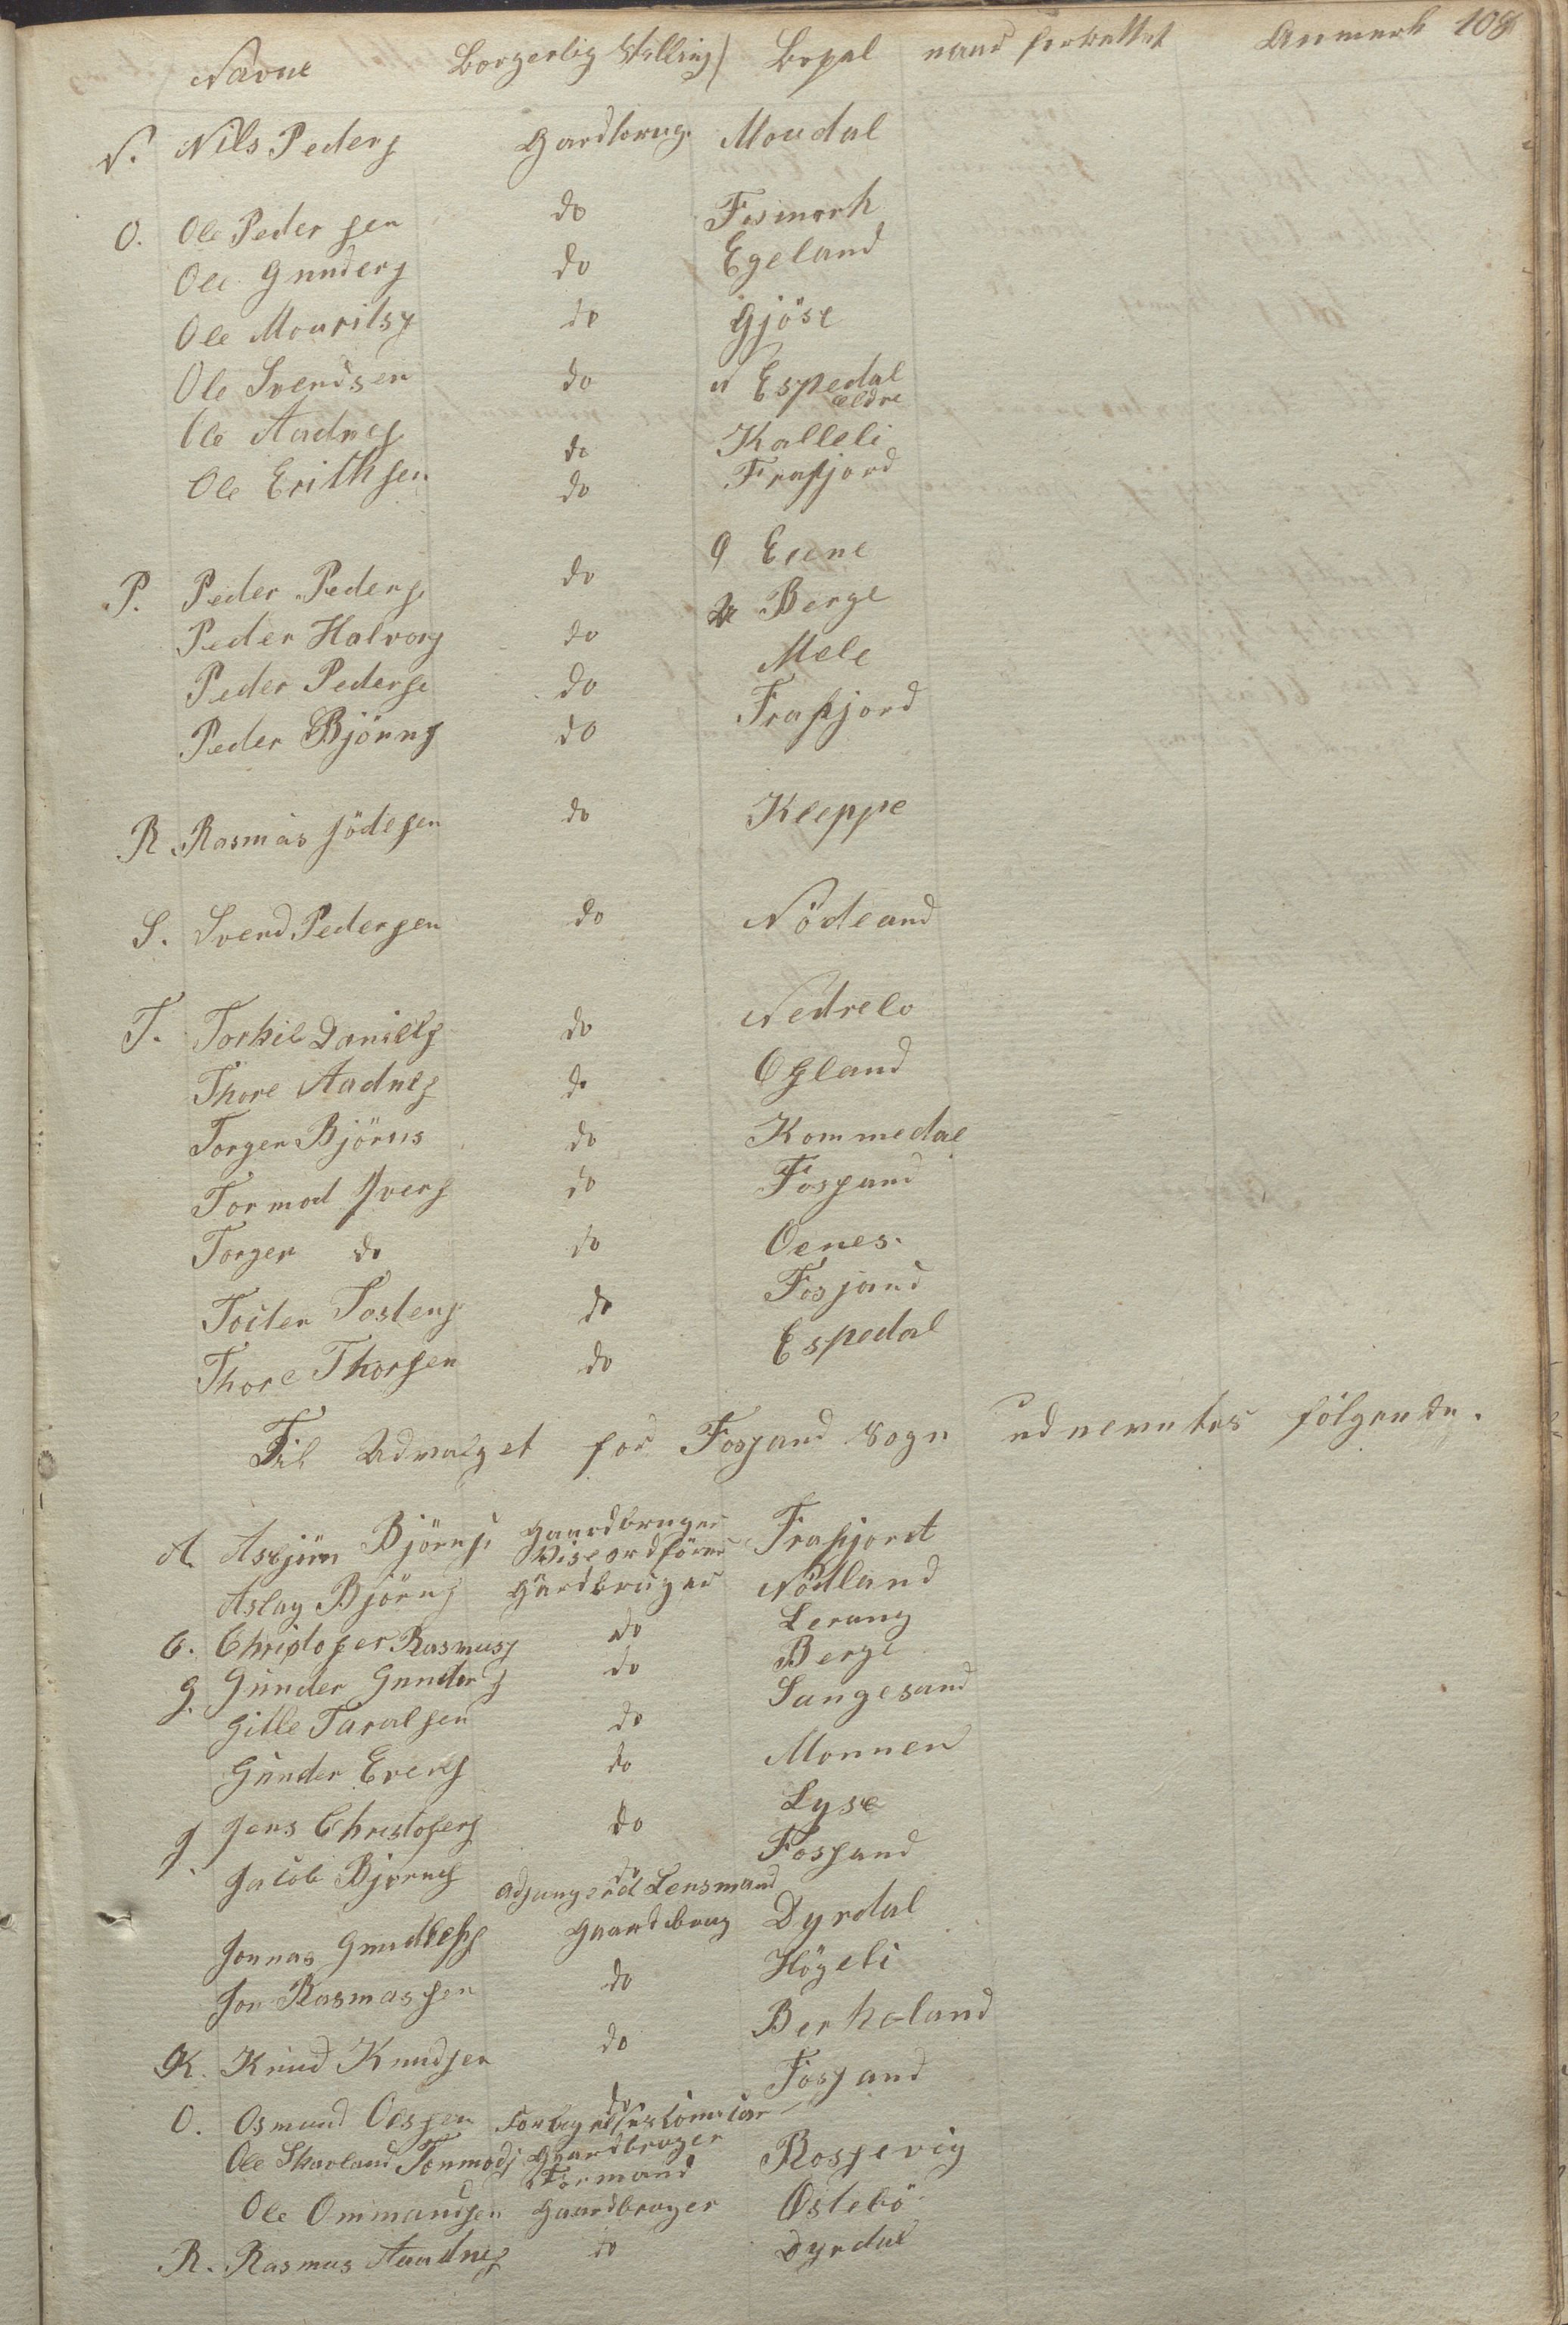 Navne Borgerlig Stilling) Bopæl naar forkattet Anmerk 108
N. Nils Peders Gardbrug. Moudal
O. Ole Pedersen do Fosmark
Ole Gunders do Egeland
Ole Mourits do Gjöse
Ole Svendsen do N Espedal ældre
Ole Aadnes do Kalleli
Ole Erithsen do Frafjord
P. Peder Peders do Ø Eiene
Peder Halvors do Berge
Peder Peders do Mele
Peder Björns do Frafjord
R. Rasmus Födesen do Kleppe
S. Svend Pedersen do Nödeand
T. Torkil Daniels do Nedrebo
Thore Aadnes do Ogland
Torger Björns do Kommedal
Tormod Ivers do Fossand
Torger do do Oenes.
Tosten Tostens do Fossand
Thore Thorsen do Espedal
Til Udvalget for Fossand Sogn udnevntes fölgende.
A. Asbjörn Björns Gaardbruger Viseordförer Frafjord
Aslag Björns Gardbruger Nödland
C. Christofer Rasmus do Lerang
G. Gunder Gunders do Berge
Gitle Taralsen do Sangesand
Gunder Evers do Monnen
J. Jens Christofers do Lyse
Jacob Björns do Adjungered Lensmand Fossand
Jonnas Gundbehs Gaardbrug Dyrdal
Jon Rasmassen do Högeli
K. Knud Knudsen do Berkeland
O. Osmund Olssen do Forligelsescomisar Fossand
Ole Skarland Tormods Gaardbruger Formand Rossevig
Ole Ommandsen Gaardbruger Østebö
R. Rasmus Aadnes do Dyrdal